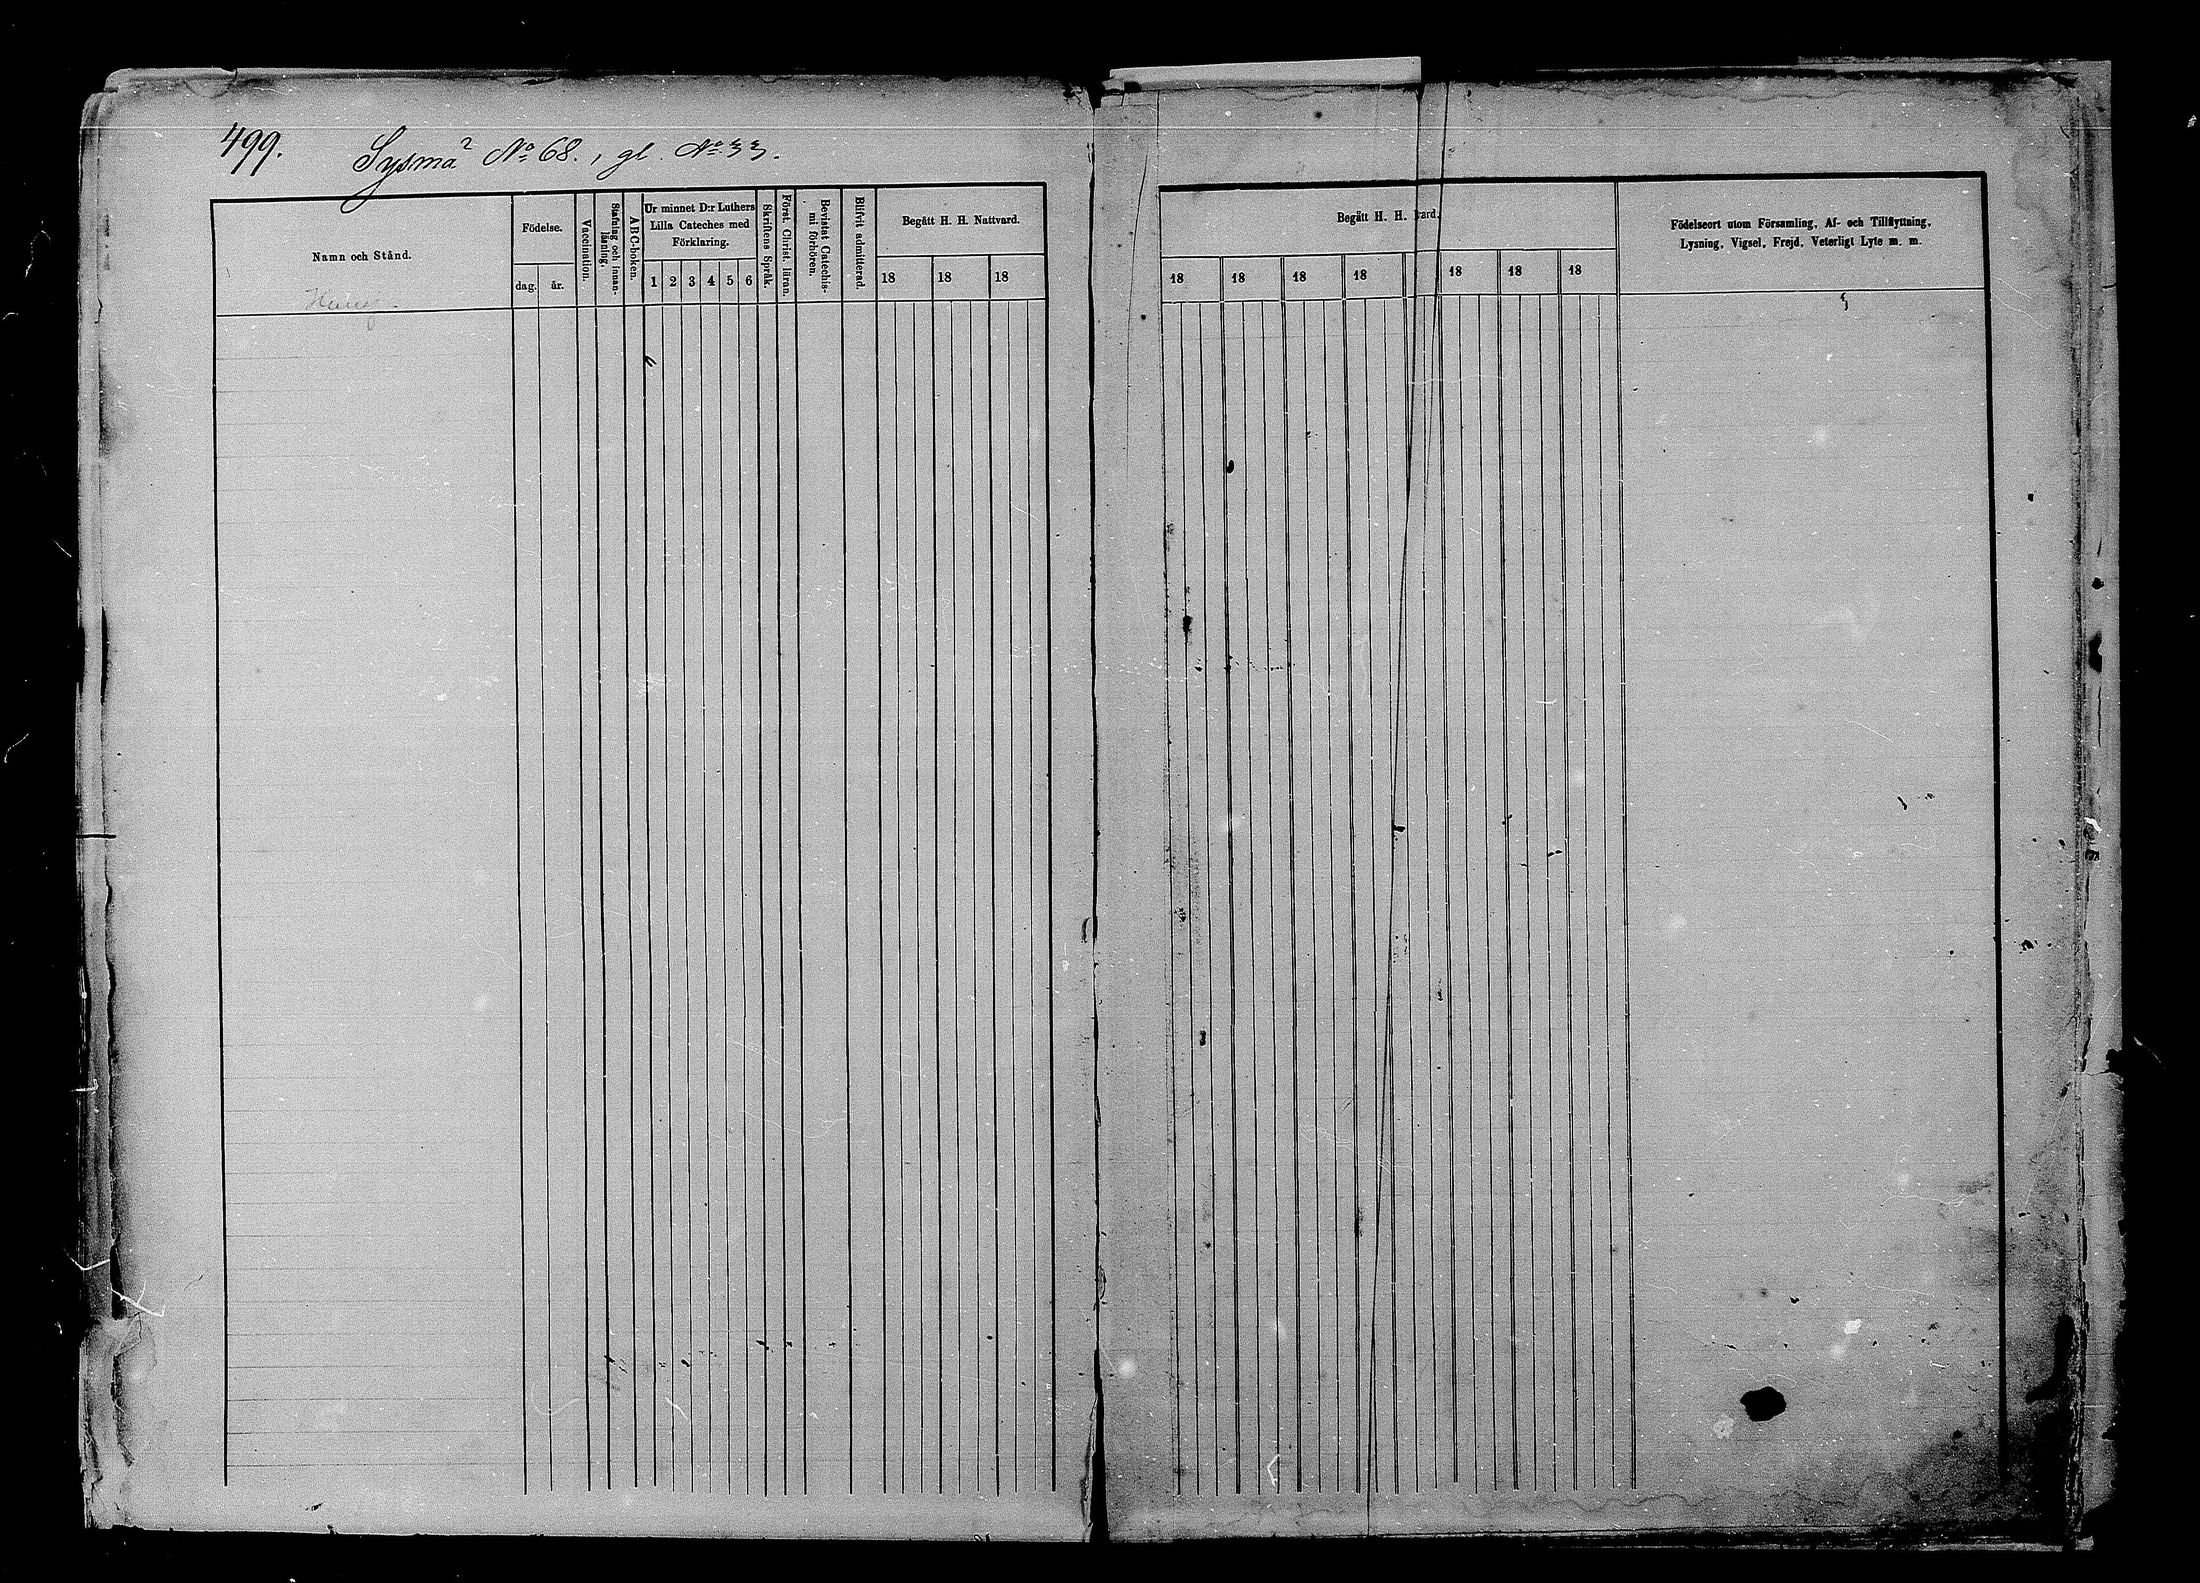 499.
Sysmä No 68., gl. No 33.
Namn och Stånd.
Födelse.
dag.
år.
Vaccination.
Stafning och innan-
läsning.
ABC-boken.
Ur minnet D:r Luthers
Lilla Cateches med
Förklaring.
1 2 3 4 5 6
Skriftens Språk.
Först. Christ. läran.
Bevistat Catechis-
mi förhören.
Blifvit admitterad.
Begått H. H. Nattvard.
18 18 18
Begått H. H. vard.
18 18 18 18 18 18 18
Födelseort utom Församling, Af- och Tillflyttning,
Lysning, Vigsel, Frejd, Veterligt Lyte m. m.